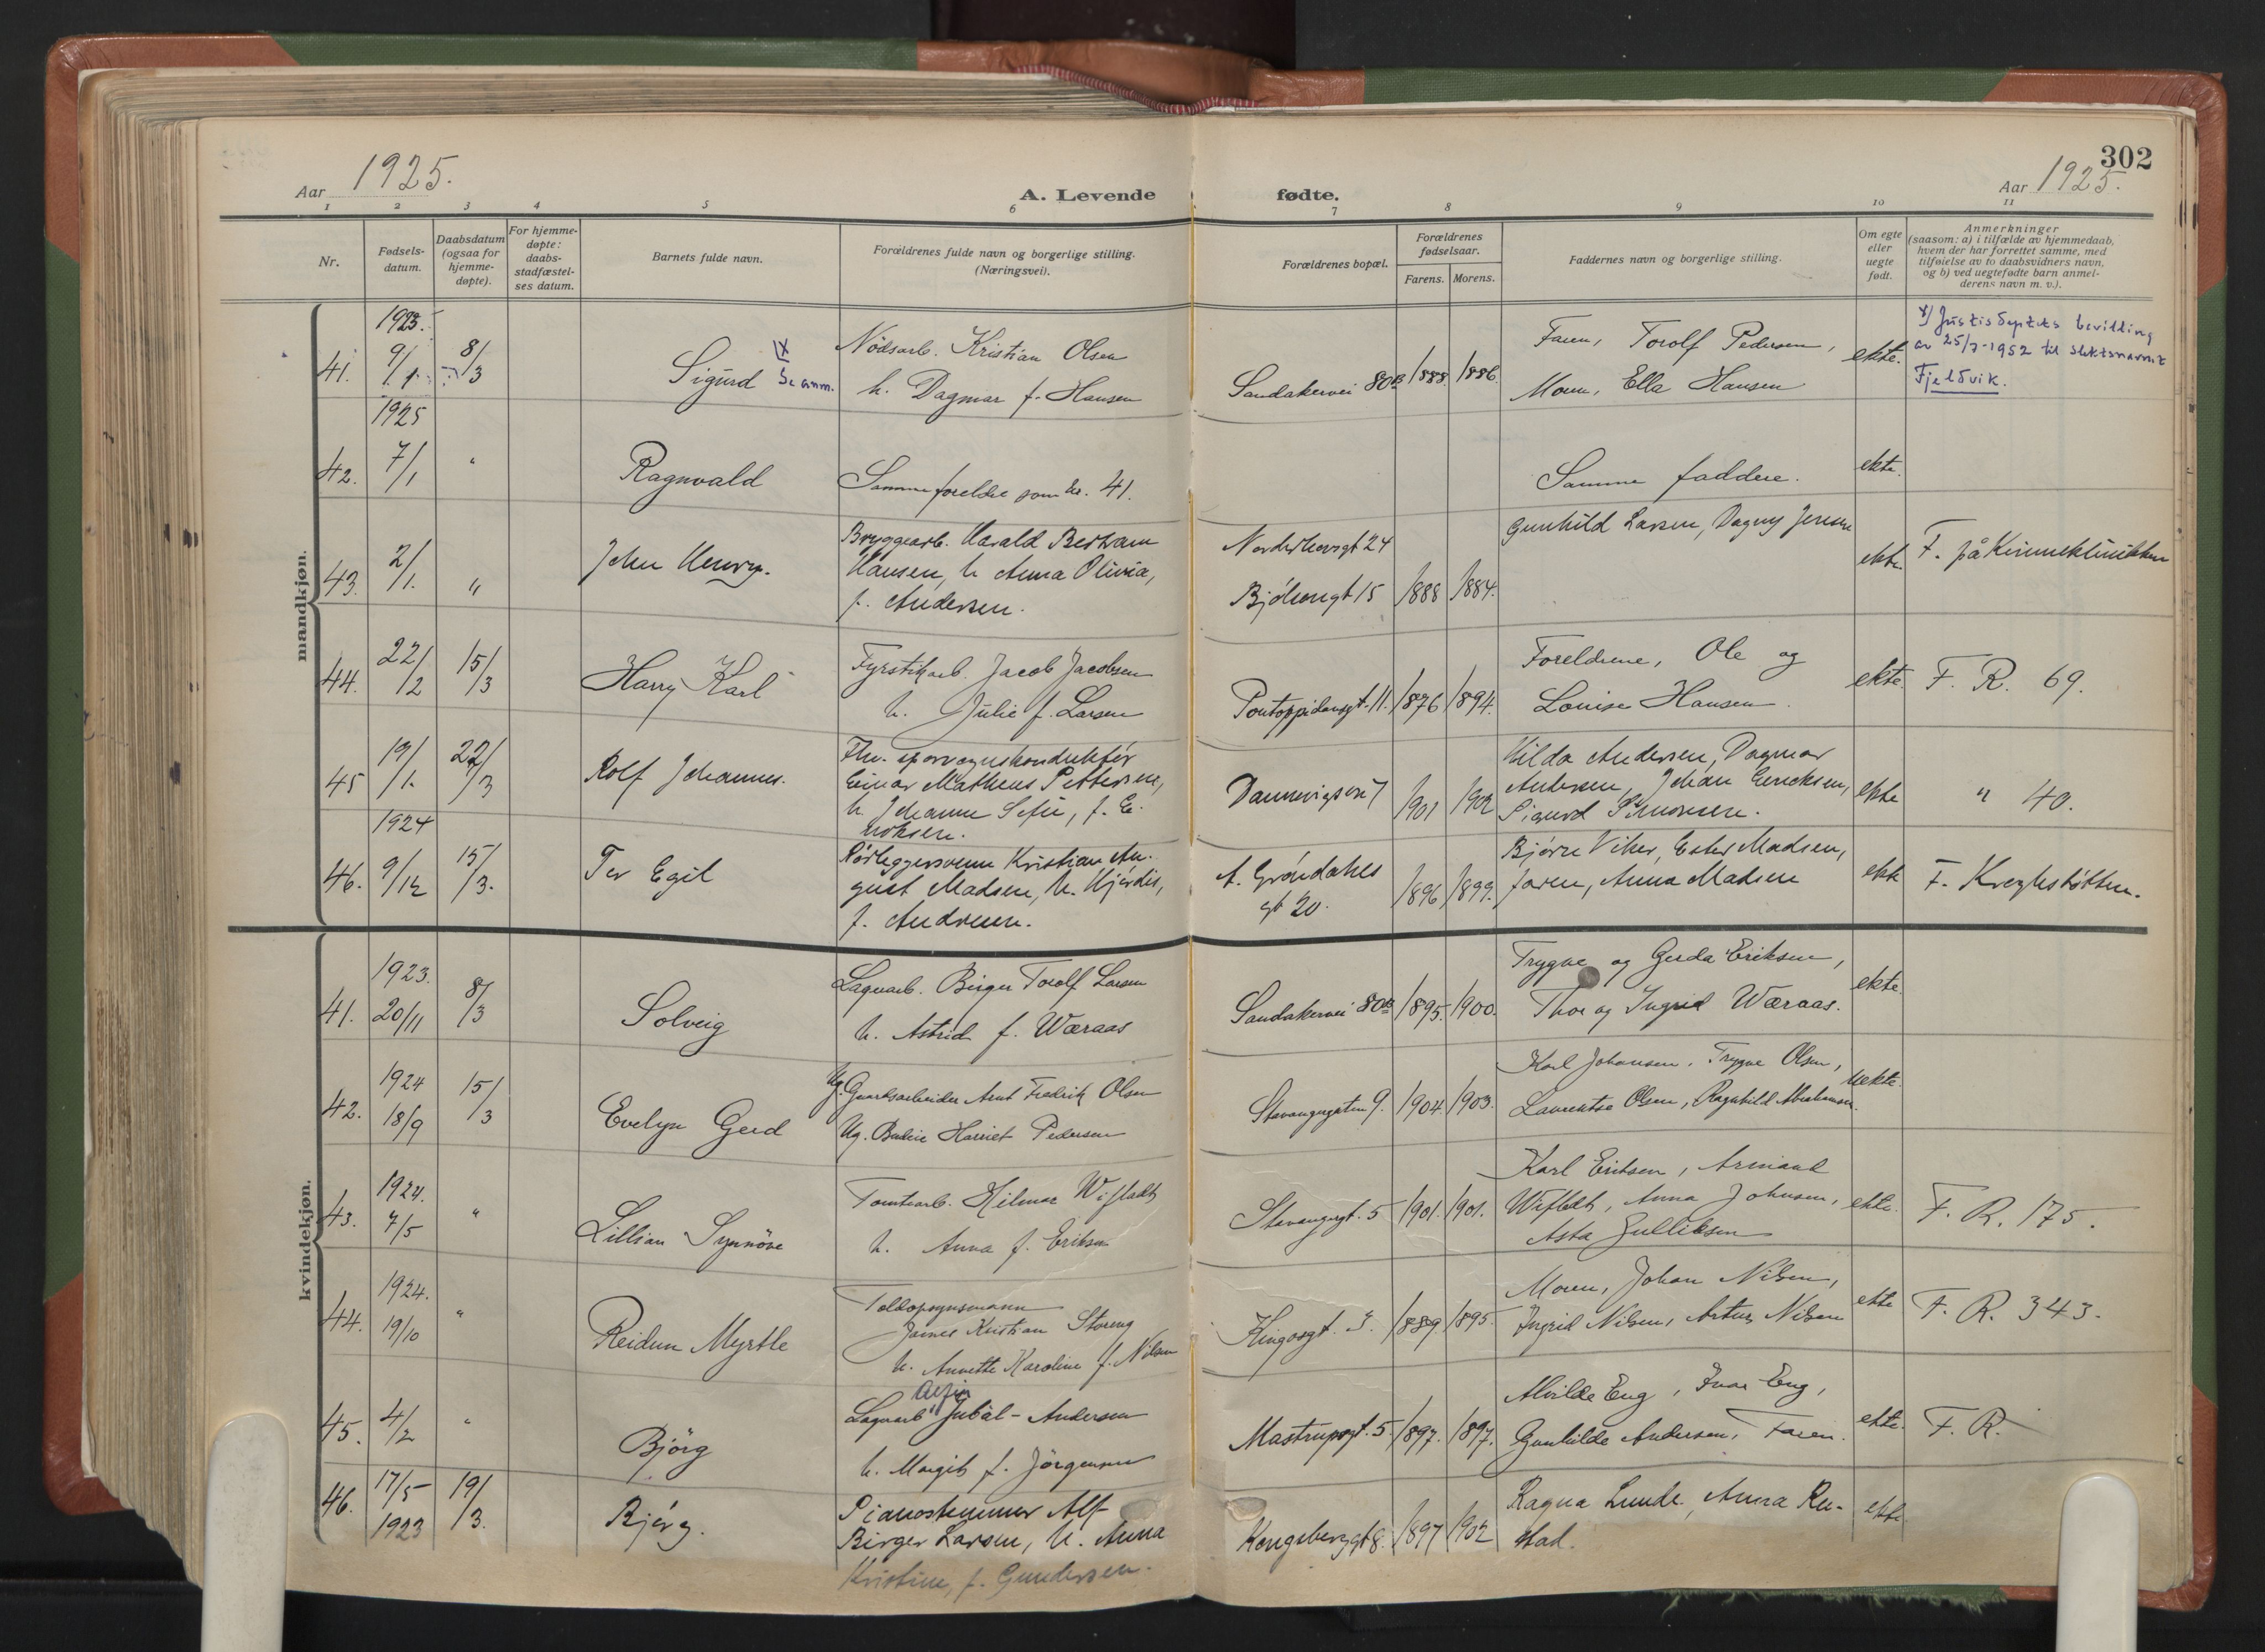 302
Aar 1925.
A. Levende fødte.
Aar 1925.
1 2 3 4 5 6 7 8 9 10 11
Nr.
Fødsels-
datum.
Daabsdatum
(ogsaa for
hjemme-
døpte).
For hjemme-
døpte:
daabs-
stadfæstel-
ses datum.
Barnets fulde navn.
Forældrenes fulde navn og borgerlige stilling.
(Næringsvei).
Forældrenes bopæl.
Forældrenes
fødselsaar.
Farens. Morens.
Faddernes navn og borgerlige stilling.
Om egte
eller
uegte
født.
Anmerkninger
(saasom: a) i tilfælde av hjemmedaab,
hvem der har forrettet samme, med
tilføielse av to daabsvidners navn,
og b) ved uegtefødte barn anmel-
derens navn m. v.).
mandkjøn.
41. 1923. 9/1 8/3
Sigurd x Se anm.
Nødsarb. Kristian Olsen
h. Dagmar f. Hansen
Sandakervei 80B 1888. 1886.
Faren, Torolf Pedersen,
Moren, Ella Hansen
ekte.
x) Justisdeptets bevilling
av 25/7-1952 til slektsnavnet
Fjeldvik.
42. 1925 7/1 "
Ragnvald
Samme foreldre som nr. 41.
Samme faddere.
ekte.
43. 2/1. "
John Henry.
Bryggearb. Harald Bertram
Hansen, h. Anna Olivia,
f. Andersen.
Norderhovsgt 24
Bjølsengt 15 1888 1884.
Gunhild Larsen, Dagny Jensen
ekte.
F. på Kvinneklinikken
44. 22/2 15/3
Harry Karl
Fyrstikarb. Jacob Jacobsen
h. Julie f. Larsen
Pontoppidansgt. 11. 1876 1894.
Foreldrene, Ole og
Louise Hansen.
ekte.
F. R. 69.
45 19/1. 22/3
Rolf Johannes.
Fhv. sporvognskonduktør
Einar Matheus Pettersen,
h. Johanne Sofie, f. E-
noksen.
Dannevigsvn 7 1901 1902
Hilda Andersen, Dagmar
Andersen, Johan Ericksen,
Sigurd Simonsen.
ekte
" 40.
46. 1924 9/12 15/3.
Tor Egil
Rørleggersvenn Kristian Au-
gust Madsen, h. Hjørdis,
f. Andresen.
A. Grøndahls
gt 20. 1896 1899.
Bjørn Viker, Ester Madsen,
faren, Anna Madsen
ekte
F. Kroghstøtten.
kvindekjøn.
41. 1923. 20/11 8/3
Solveig
Lagerarb. Birger Torolf Larsen
h. Astrid f. Wæraas
Sandakervei 80B 1895. 1900.
Trygve og Gerda Eriksen,
Thor og Ingrid Wæraas.
ekte.
42. 1924 18/9 15/3
Evelyn Gerd
Ug. Gaardsarbeider Arnt Fredrik Olsen
Ug. Harriet Pedersen
Stavangergaten 9. 1904. 1903.
Karl Johansen, Trygve Olsen,
Laurentse Olsen, Ragnhild Abrahamsen.
uekte.
43. 1924. 7/5 "
Lillian Synnöve
Tomtearb. Hilmar Wifladt
h. Anna f. Eriksen
Stavangergt. 5 1901. 1901.
Karl Eriksen, Armand
Wifladt, Anna Johnsen,
Asta Gulliksen
ekte.
F. R. 175.
44. 1924. 19/10 "
Reidun Myrtle
Toldopsynsmann
James Kristian Storeng
h. Annette Karoline f. Nilsen
Kingosgt. 3. 1889. 1895.
Moren, Johan Nilsen,
Ingrid Nilsen, Artur Nilsen
ekte
F. R. 343.
45. 4/2 "
Bjørg
Alfin
Lagerarb. Jubal - Andersen
h. Margit f. Jörgensen
Mastrupsgt. 5. 1897. 1897.
Alvilde Eng, Ivar Eng,
Gunhilde Andersen, Faren.
ekte.
F. R.
46. 17/5 1923 19/3.
Bjørg.
Pianostemmer Alf
Birger Larsen, h. Anna
Kristine, f. Gundersen.
Kongsberggt 8. 1897 1902
Ragna Lunde, Anna Ru-
stad.
ekte